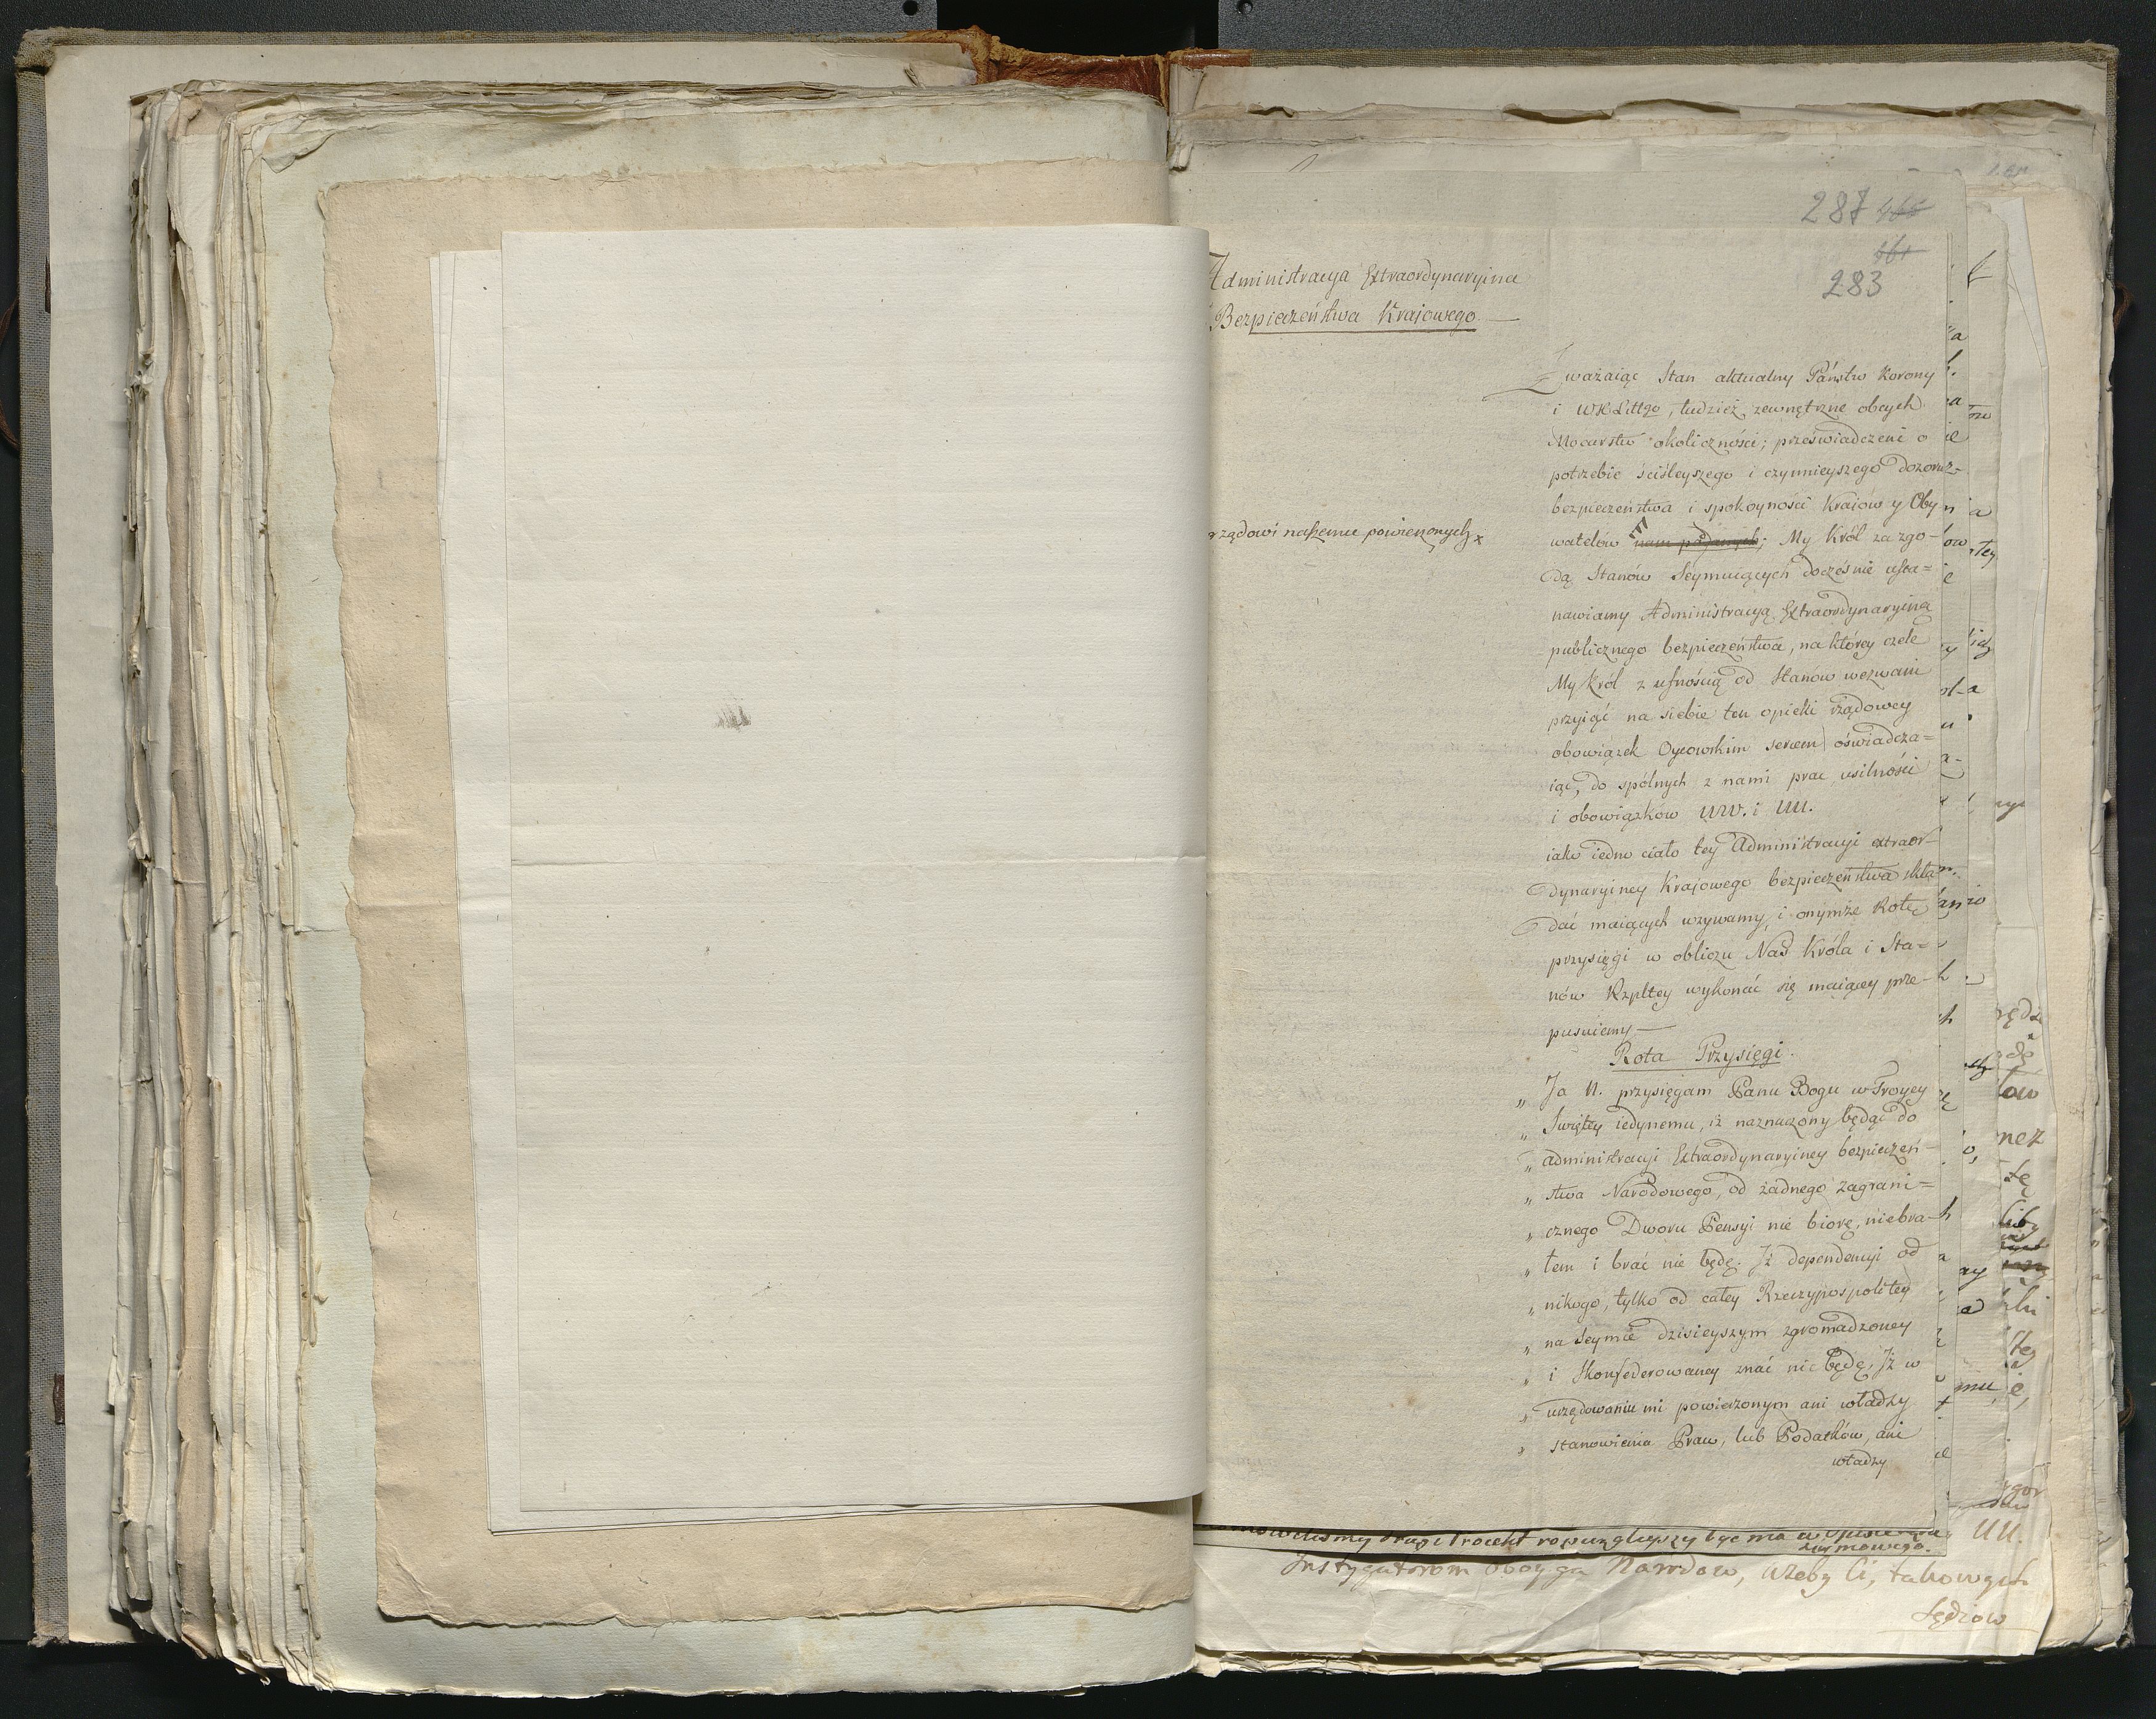 287
283
Administracya Extraordynaryina
Bezpieczeństwa Krajowego.
Zważaiąc Stan aktualny Państw Korony
i WXLittgo, tudzież zewnętrzne obcych
Mocarstw okoliczności; przeświadczeni o
potrzebie ściśleyszego i czynnieyszego dozoru
bezpieczeństwa i spokoyności Kraiów y Oby
watelów nam podanych; My Król za zgo-
rządowi naszemu powierzonych
dą Stanów Seymuiących docześnie usta=
nawiamy Administracyą Extraordynaryiną
publicznego bezpieczeństwa, na którey czele
My Król z ufnością od Stanów wezwani
przyiąć na siebie ten opieki rządowey
obowiązek Oycowskim sercem oświadcza=
iąc, do spólnych z nami prac usilności
i obowiązków WW. i UU.
iako iedno ciało tey Administracyi extraor-
dynaryiney Krajowego bezpieczeństwa skła
dać maiących wzywamy, i onymże Rotę
przysięgi w obliczu Nas Króla i Sta=
nów Rzpltey wykonać się maiącey prze-
puszczamy.—
Rota Przysięgi.
„ Ja N. przysięgam Panu Bogu w Troycy
„ Swiętey iedynemu, iż naznaczony będąc do
„ administracyi Extraordynaryiney bezpieczeń-
„ stwa Narodowego, od żadnego zagrani=
„ cznego Dworu Pensyi nie biorę, niebra-
„ łem i brać nie będę. Iż dependencyi od
„ nikogo, tylko od całey Rzeczypospolitey
„ na Seymie dzisieyszym zgromadzoney
„ i Skonfederowaney znać nie będę, Iż w
„ urzędowaniu mi powierzonym ani władzy
„ stanowienia Praw, lub Podatków, ani
władzy
Instygatorom oboyga Narodow, ażeby Ci, takowych
Sędziow